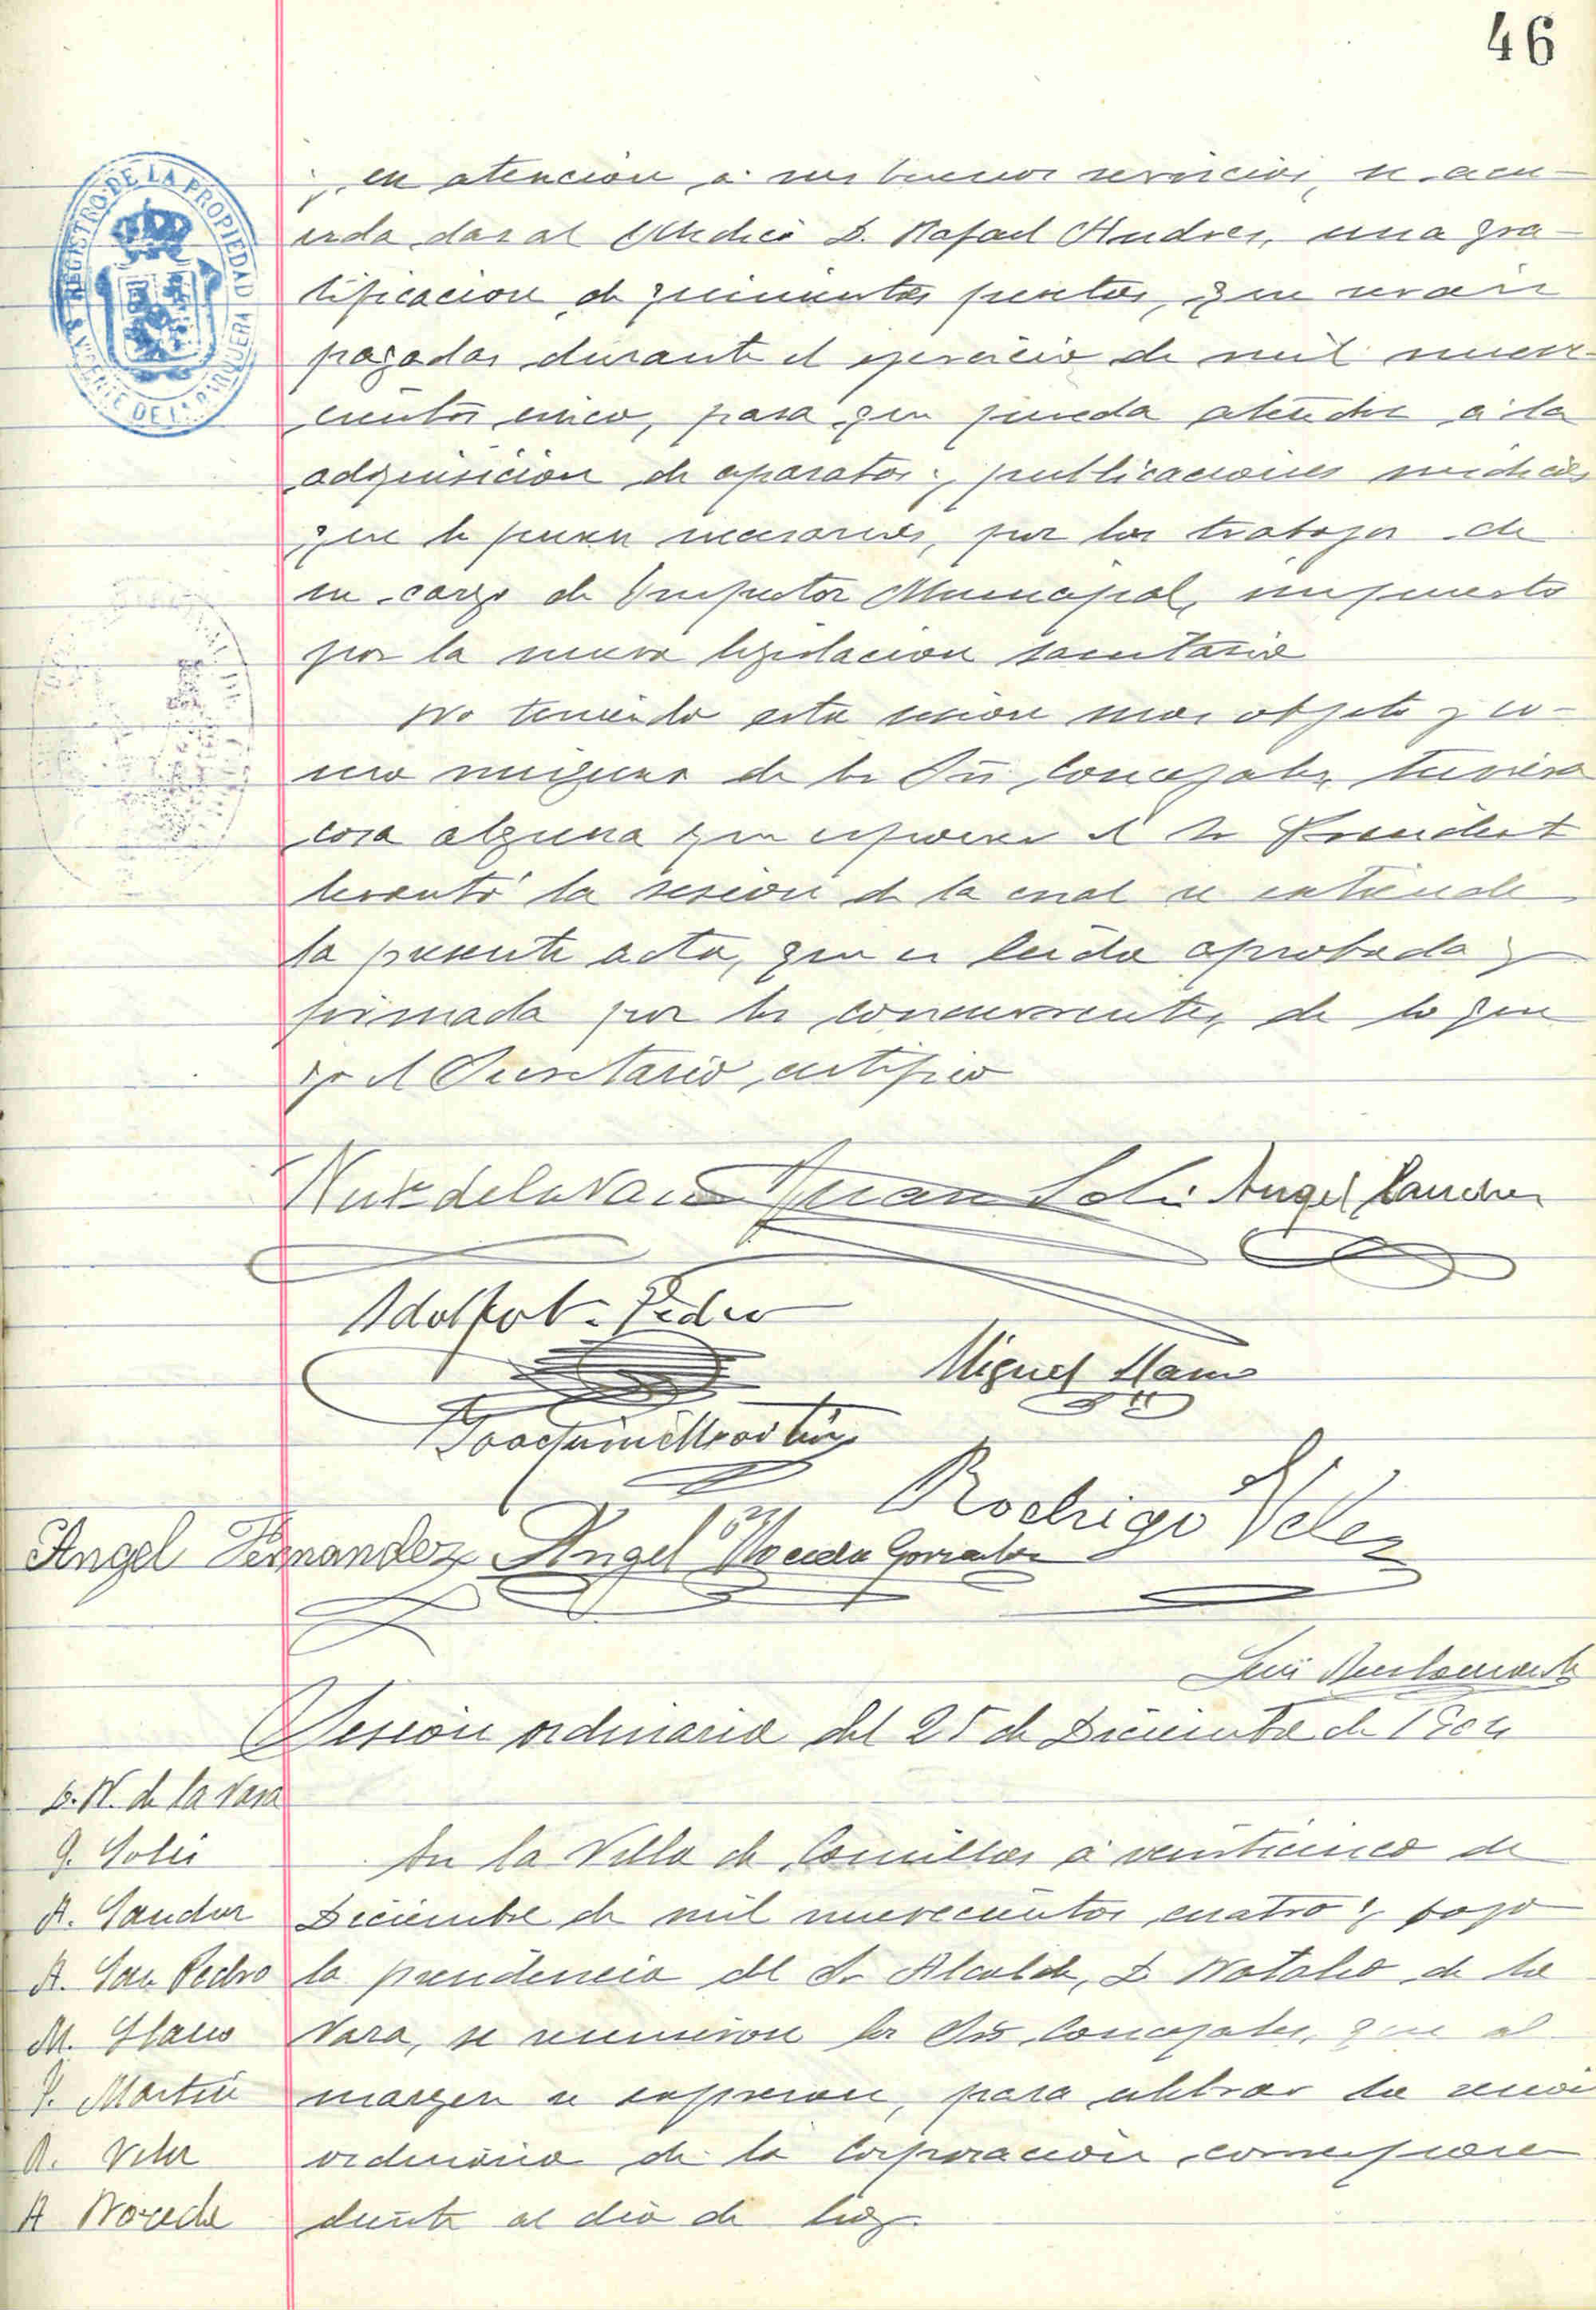 46
REGISTRO DE LA PROPIEDAD
S. VICENTE DE LA BARQUERA
y, en atencion á sus buenos servicios, se acu-
erda dar al Medico D. Rafael Andres, una gra-
tificacion de quinientas pesetas, que seran
pagadas durante el ejercicio de mil nueve-
cientos cinco, para que pueda atender á la
adquisicion de aparatos y publicaciones medicas
que le sean necesarios, por los trabajos de
su cargo de Inspector Municipal, impuesto
por la nueva legislacion sanitaria
No teniendo esta sesion mas objeto y co-
mo ninguno de los Srs Concejales, tuviera
cosa alguna que exponer el Sr Presidente
levantó la sesion de la cual se extiende
la presente acta, que es leida aprobada y
firmada por los concurrentes, de lo que
yo el Secretario, certifico
N. de la Vara Juan Solis Angel Sanchez
Adolfo S. Pedro
Miguel Llano
Joaquin Martin
Rodrigo Velez
Angel Fernandez Angel Noceda Gonzalez
Luis
Sesion ordinaria del 25 de Diciembre de 1904
D. N. de la Vara
J. Solis
A. Sanchez
A. San Pedro
M. Llano
J. Martin
R. Velez
A Noceda
En la Villa de Comillas á veinticinco de
Diciembre de mil nuevecientos cuatro y bajo
la presidencia del Sr Alcalde, D Natalio de la
Vara, se reunieron los Srs Concejales, que al
margen se expresan, para celebrar la sesion
ordinaria de la Corporacion correspon
diente al dia de hoy.